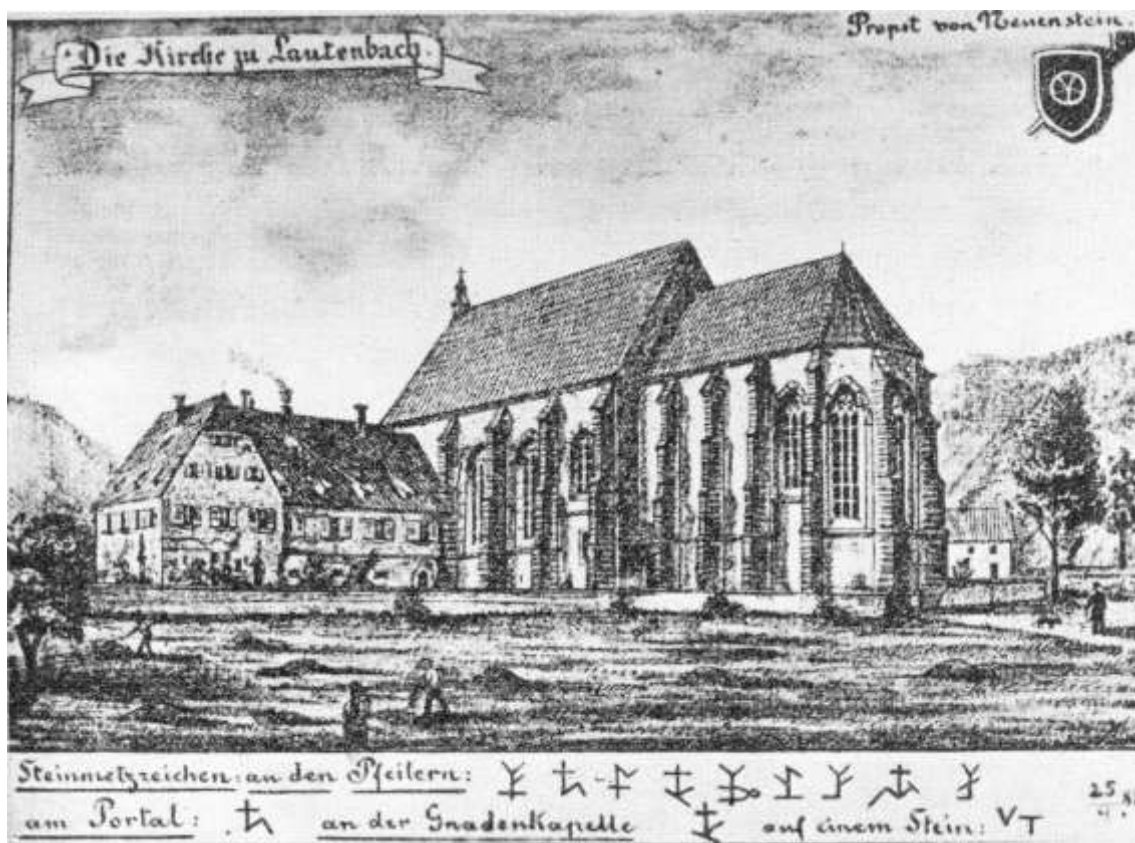 Die Kirche zu Lautenbach.
Propst von Neuenstein.
Steinmetzzeichen: an den Pfeilern:
am Portal: an der Gnadenkapelle auf einem Stein: VT
25
4.